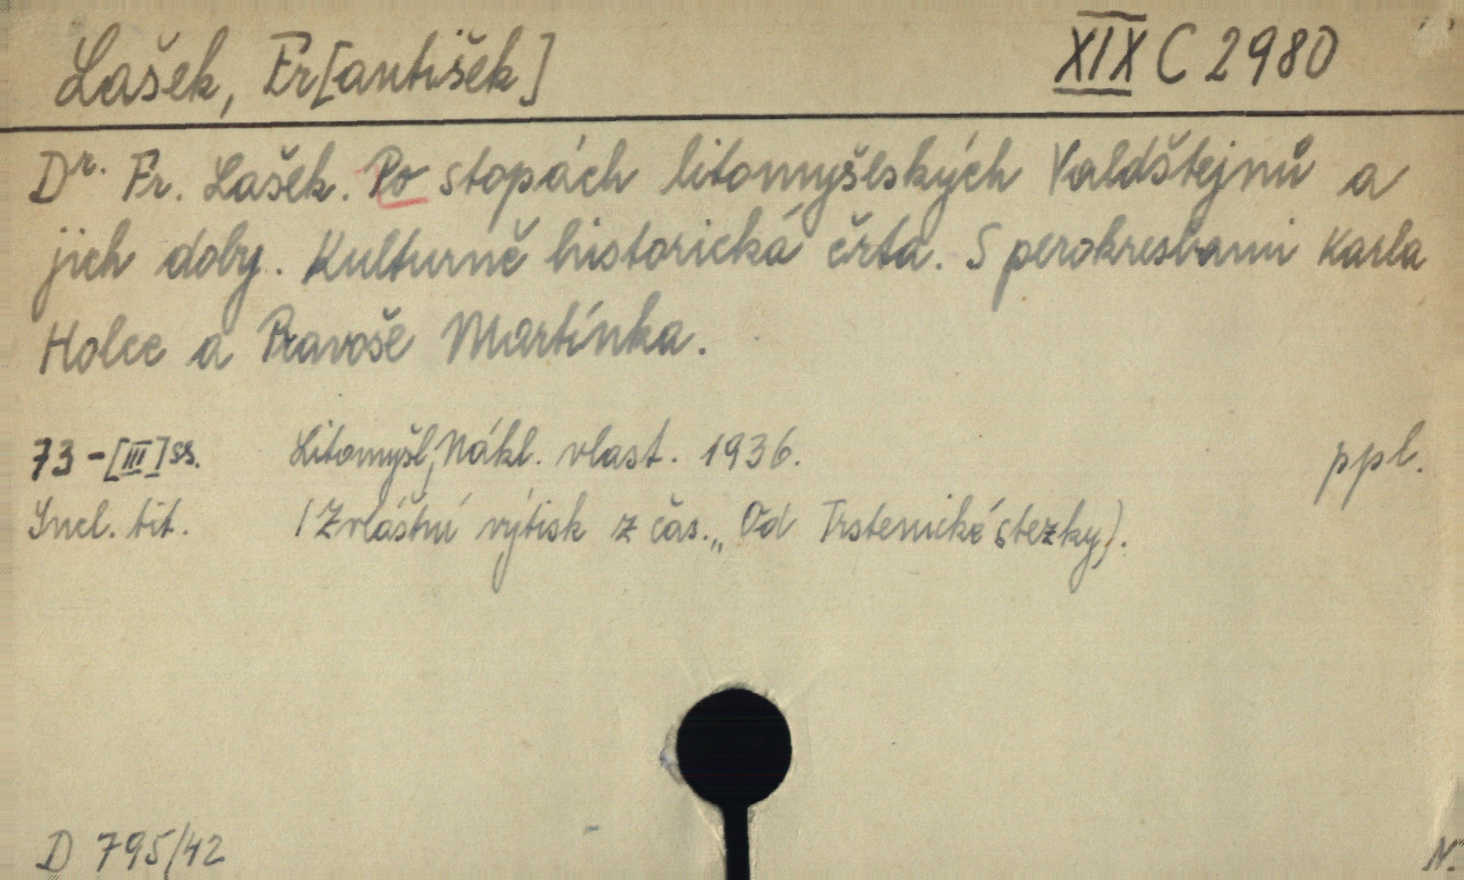 Lašek, Fr[antišek]
XIX C 2980
Dr. Fr. Lašek. Po stopách litomyšlských Valdštejnů a
jich doby. Kulturně historická črta. S perokresbami Karla
Holce a Pravoše Martínka.
73-[III] ss. Litomyšl, Nákl. vlast. 1936. ppl.
Incl. tit. (Zvláštní výtisk z čas. „Od Trstenické stezky).
D 795/42
N.